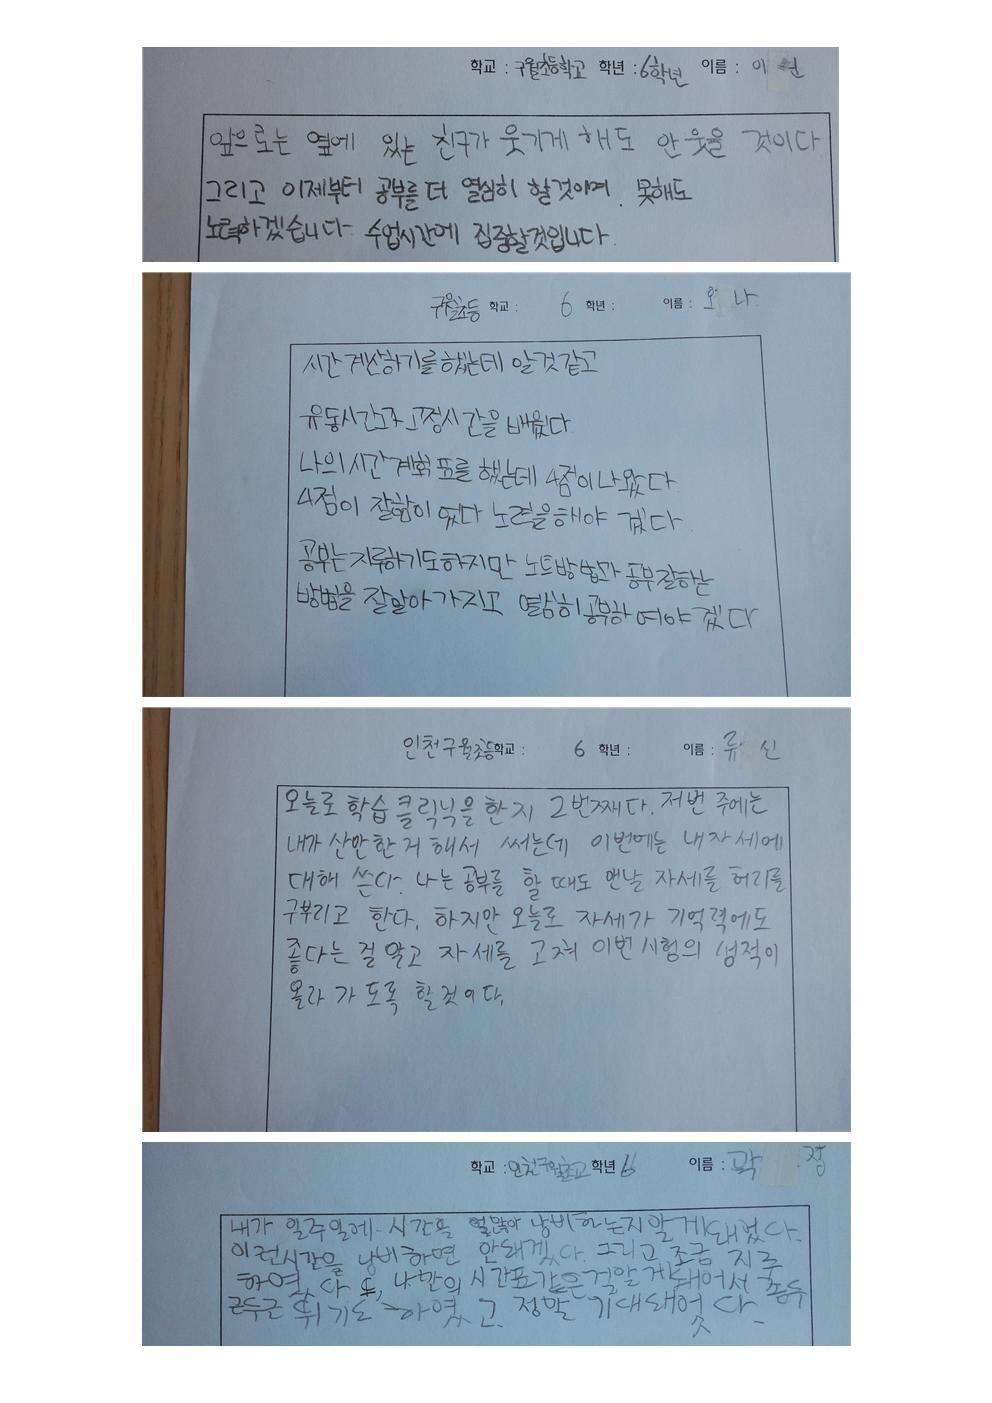 학교 : 구월초등학교 학년 : 6학년 이름 : 이
앞으로는 옆에 있는 친구가 웃기게 해도 안 웃을 것이다
그리고 이제부터 공부를 더 열심히 할것이며. 못해도
노력하겠습니다. 수업시간에 집중할것입니다.
구월초등 학교 : 6 학년 : 이름 : 오 나
시간 계산하기를 했는데 알것 같고
유동시간과 고정시간을 배웠다
나의 시간 계획 표를 했는데 4점이 나왔다
4점이 잘함이 였다 노력을해야 겠다.
공부는 지루하기도하지만 노트방법과 공부잘하는
방법을 잘알아 가지고 열심히 공부하 여야 겠다
인천구월초등학교 : 6 학년 : 이름 : 류 신
오늘로 학습 클리닉을 한지 2번째다. 저번 주에는
내가 산만한 거 해서 써는데 이번에는 내자세에
대해 쓴다. 나는 공부를 할 때도 맨날 자세를 허리를
구부리고 한다. 하지만 오늘로 자세가 기억력에도
좋다는 걸 알고 자세를 고쳐 이번 시험의 성적이
올라 가 도록 할것이다.
학교 : 인천구월초교 학년 6 이름 : 곽 정
내가 일주일에 시간을 얼많아 낭비하는지알게돼었다.
이런시간을 낭비하면 안돼겠다. 그리고 조금 지루
하였다 또, 나만의 시간표같은걸알게돼어서
근두근 뛰기도 하였고 정말 기대돼었다.